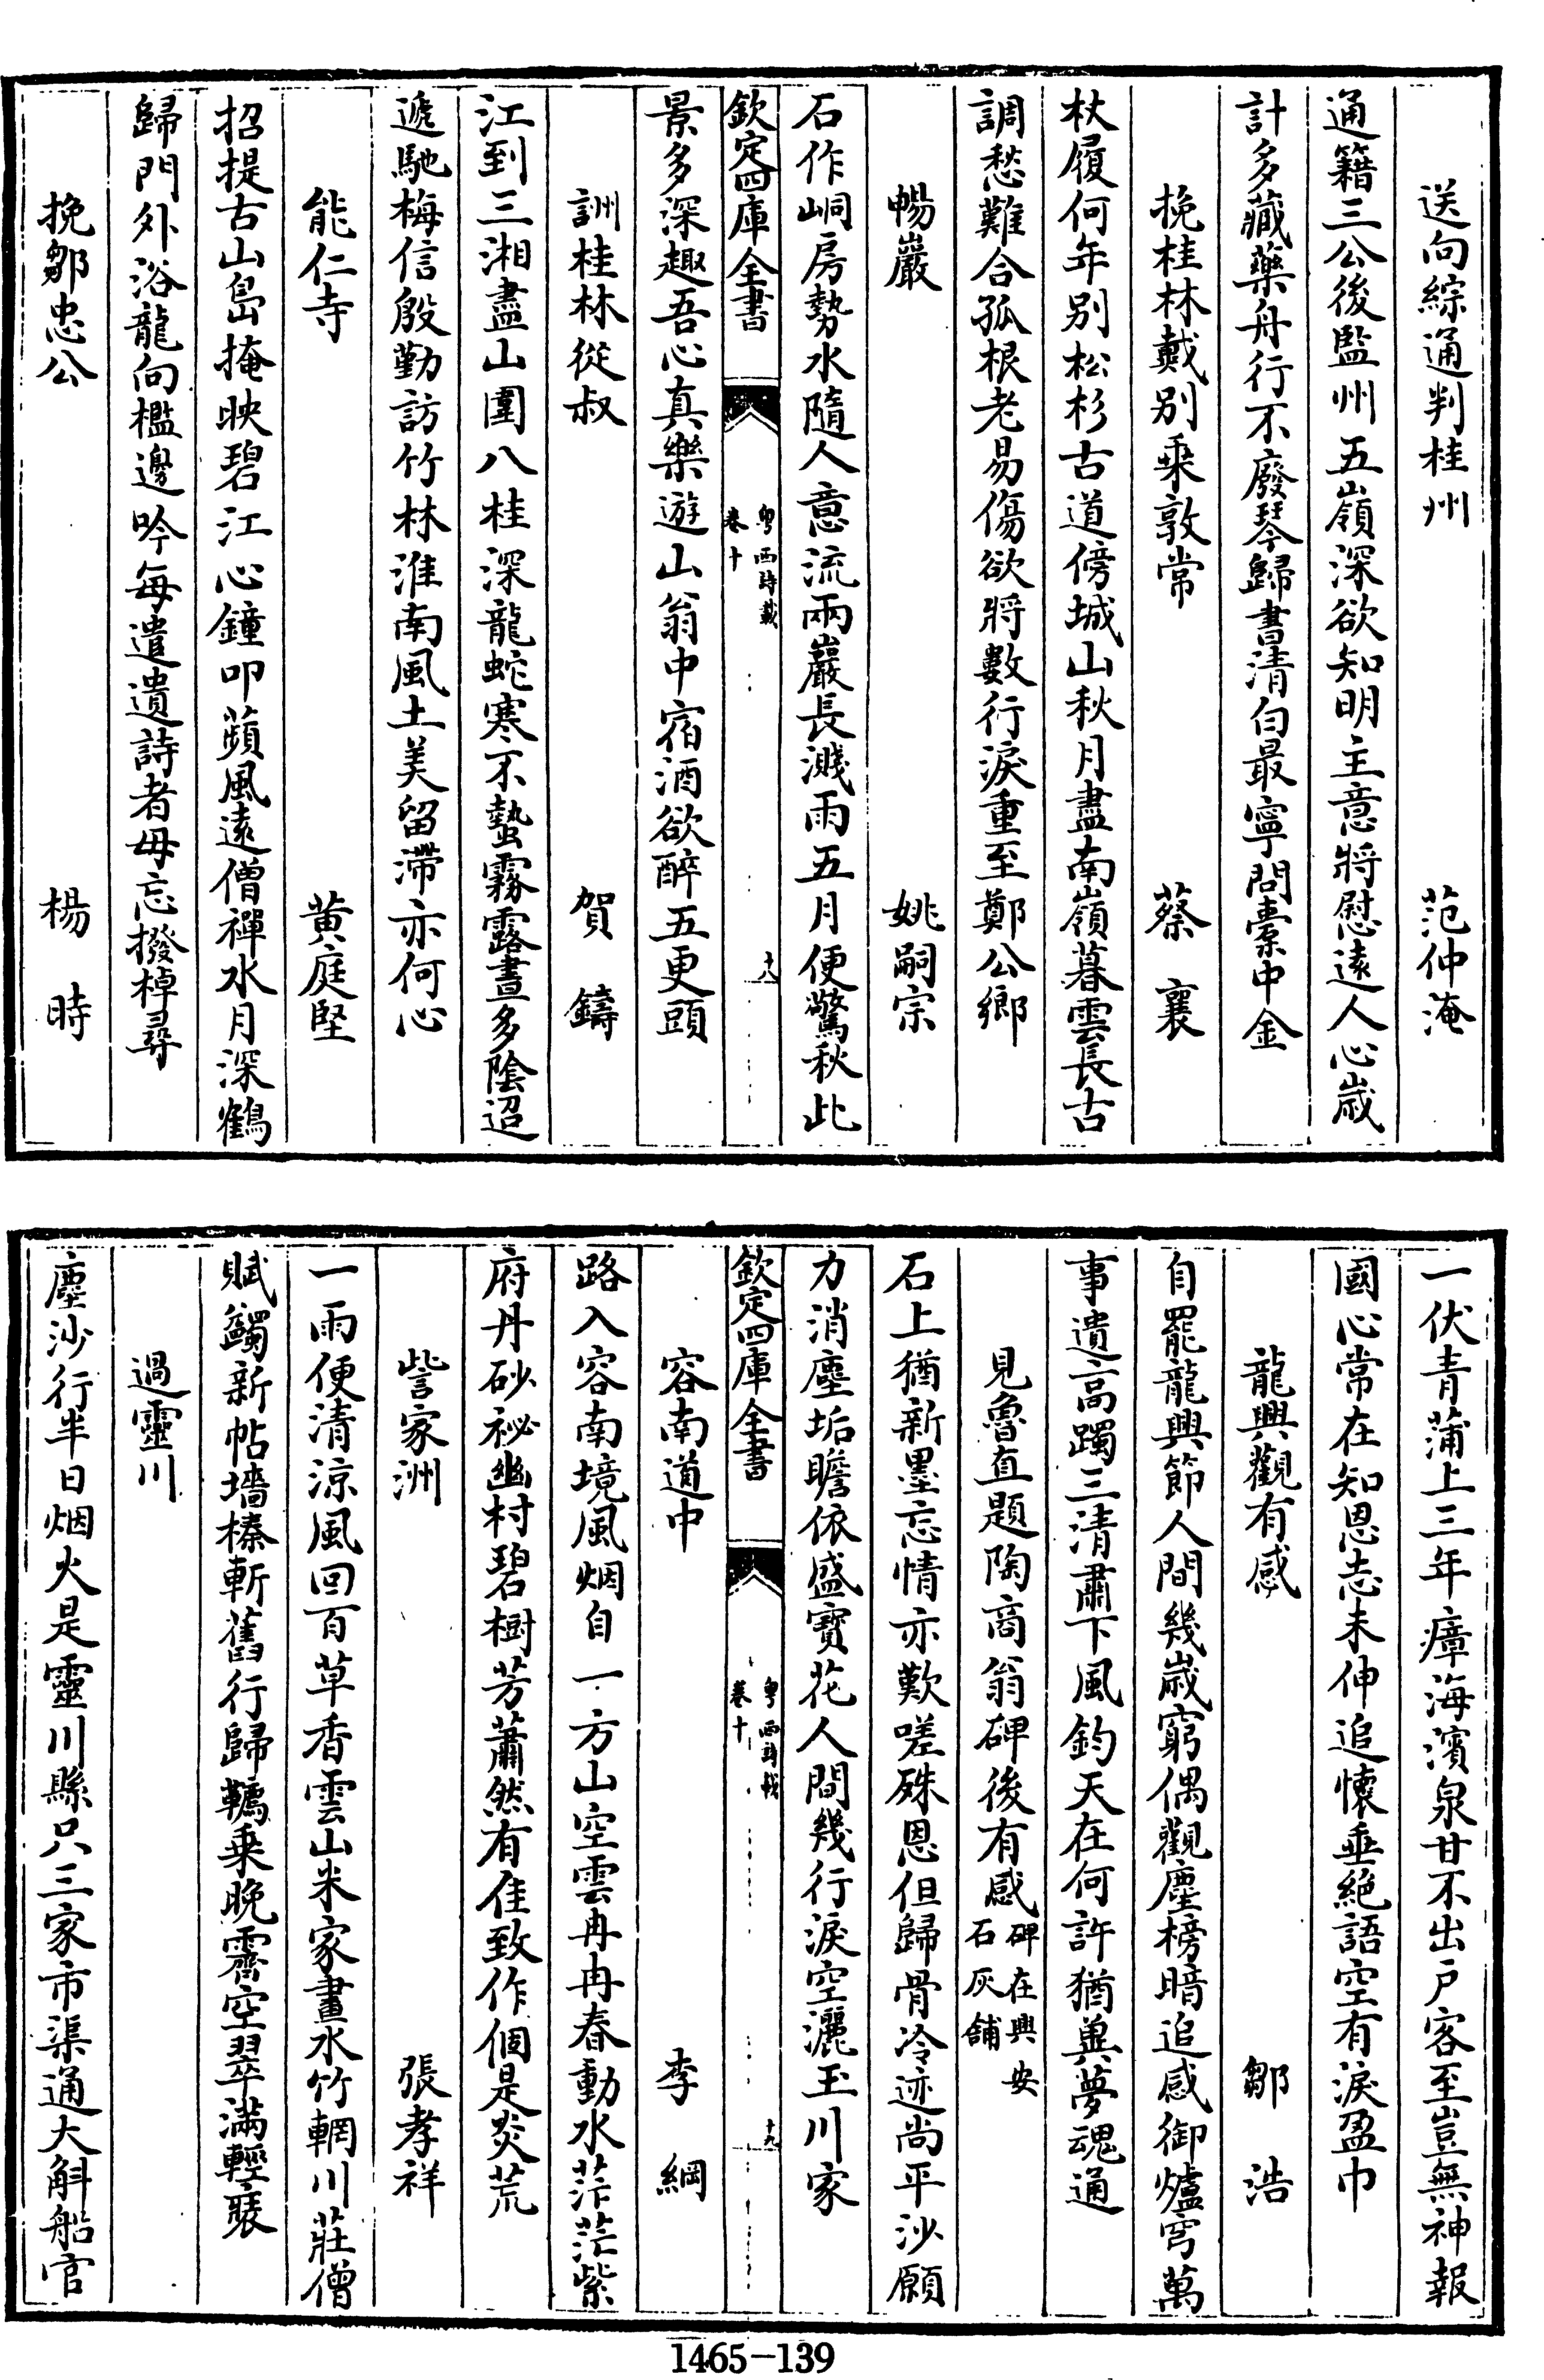 送向綜通判桂州　范仲淹
通籍三公後監州五嶺深欲知明主意將慰遠人心歲
計多藏藥舟行不廢琴歸書清白最寧問橐中金
挽桂林戴别乘敦常　蔡襄
杖履何年别松杉古道傍城山秋月盡南嶺暮雲長古
調愁難合孤根老易傷欲將數行淚重至鄭公鄉
暢巖　姚嗣宗
石作峒房勢水隨人意流兩巖長濺雨五月便驚秋此
欽定四庫全書　粤西詩載卷十　十八
景多深趣吾心真樂遊山翁中宿酒欲醉五更頭
詶桂林從叔　賀鑄
江到三湘盡山圍八桂深龍蛇寒不蟄霧露晝多陰迢
遞馳梅信殷勤訪竹林淮南風土美留滯亦何心
能仁寺　黄庭堅
招提古山島掩映碧江心鐘叩蘋風遠僧禪水月深鶴
歸門外浴龍向檻邊吟每遣遺詩者毋忘撥棹尋
挽鄒忠公　楊時
一伏青蒲上三年瘴海濱泉甘不出戶客至豈無神報
國心常在知恩志未伸追懷垂絶語空有淚盈巾
龍興觀有感　鄒浩
自罷龍興節人間幾歲窮偶觀塵榜暗追感御爐穹萬
事遺高躅三清肅下風鈞天在何許猶與夢魂通
見魯直題陶商翁碑後有感碑在興安石灰舖
石上猶新墨忘情亦歎嗟殊恩但歸骨冷迹尚平沙願
力消塵垢瞻依盛寶花人間幾行淚空灑玉川家
欽定四庫全書　粤西詩載卷十　十九
容南道中　李綱
路入容南境風烟自一方山空雲冉冉春動水茫茫紫
府丹砂祕幽村碧樹芳蕭然有佳致作個是炎荒
訾家洲　張孝祥
一雨便清涼風回百草香雲山米家畫水竹輞川莊僧
賦蠲新帖墻榛斬舊行歸韉乗晚霽空翠滿輕裘
過靈川
塵沙行半日烟火是靈川縣只三家市渠通大斛船官
1465-139